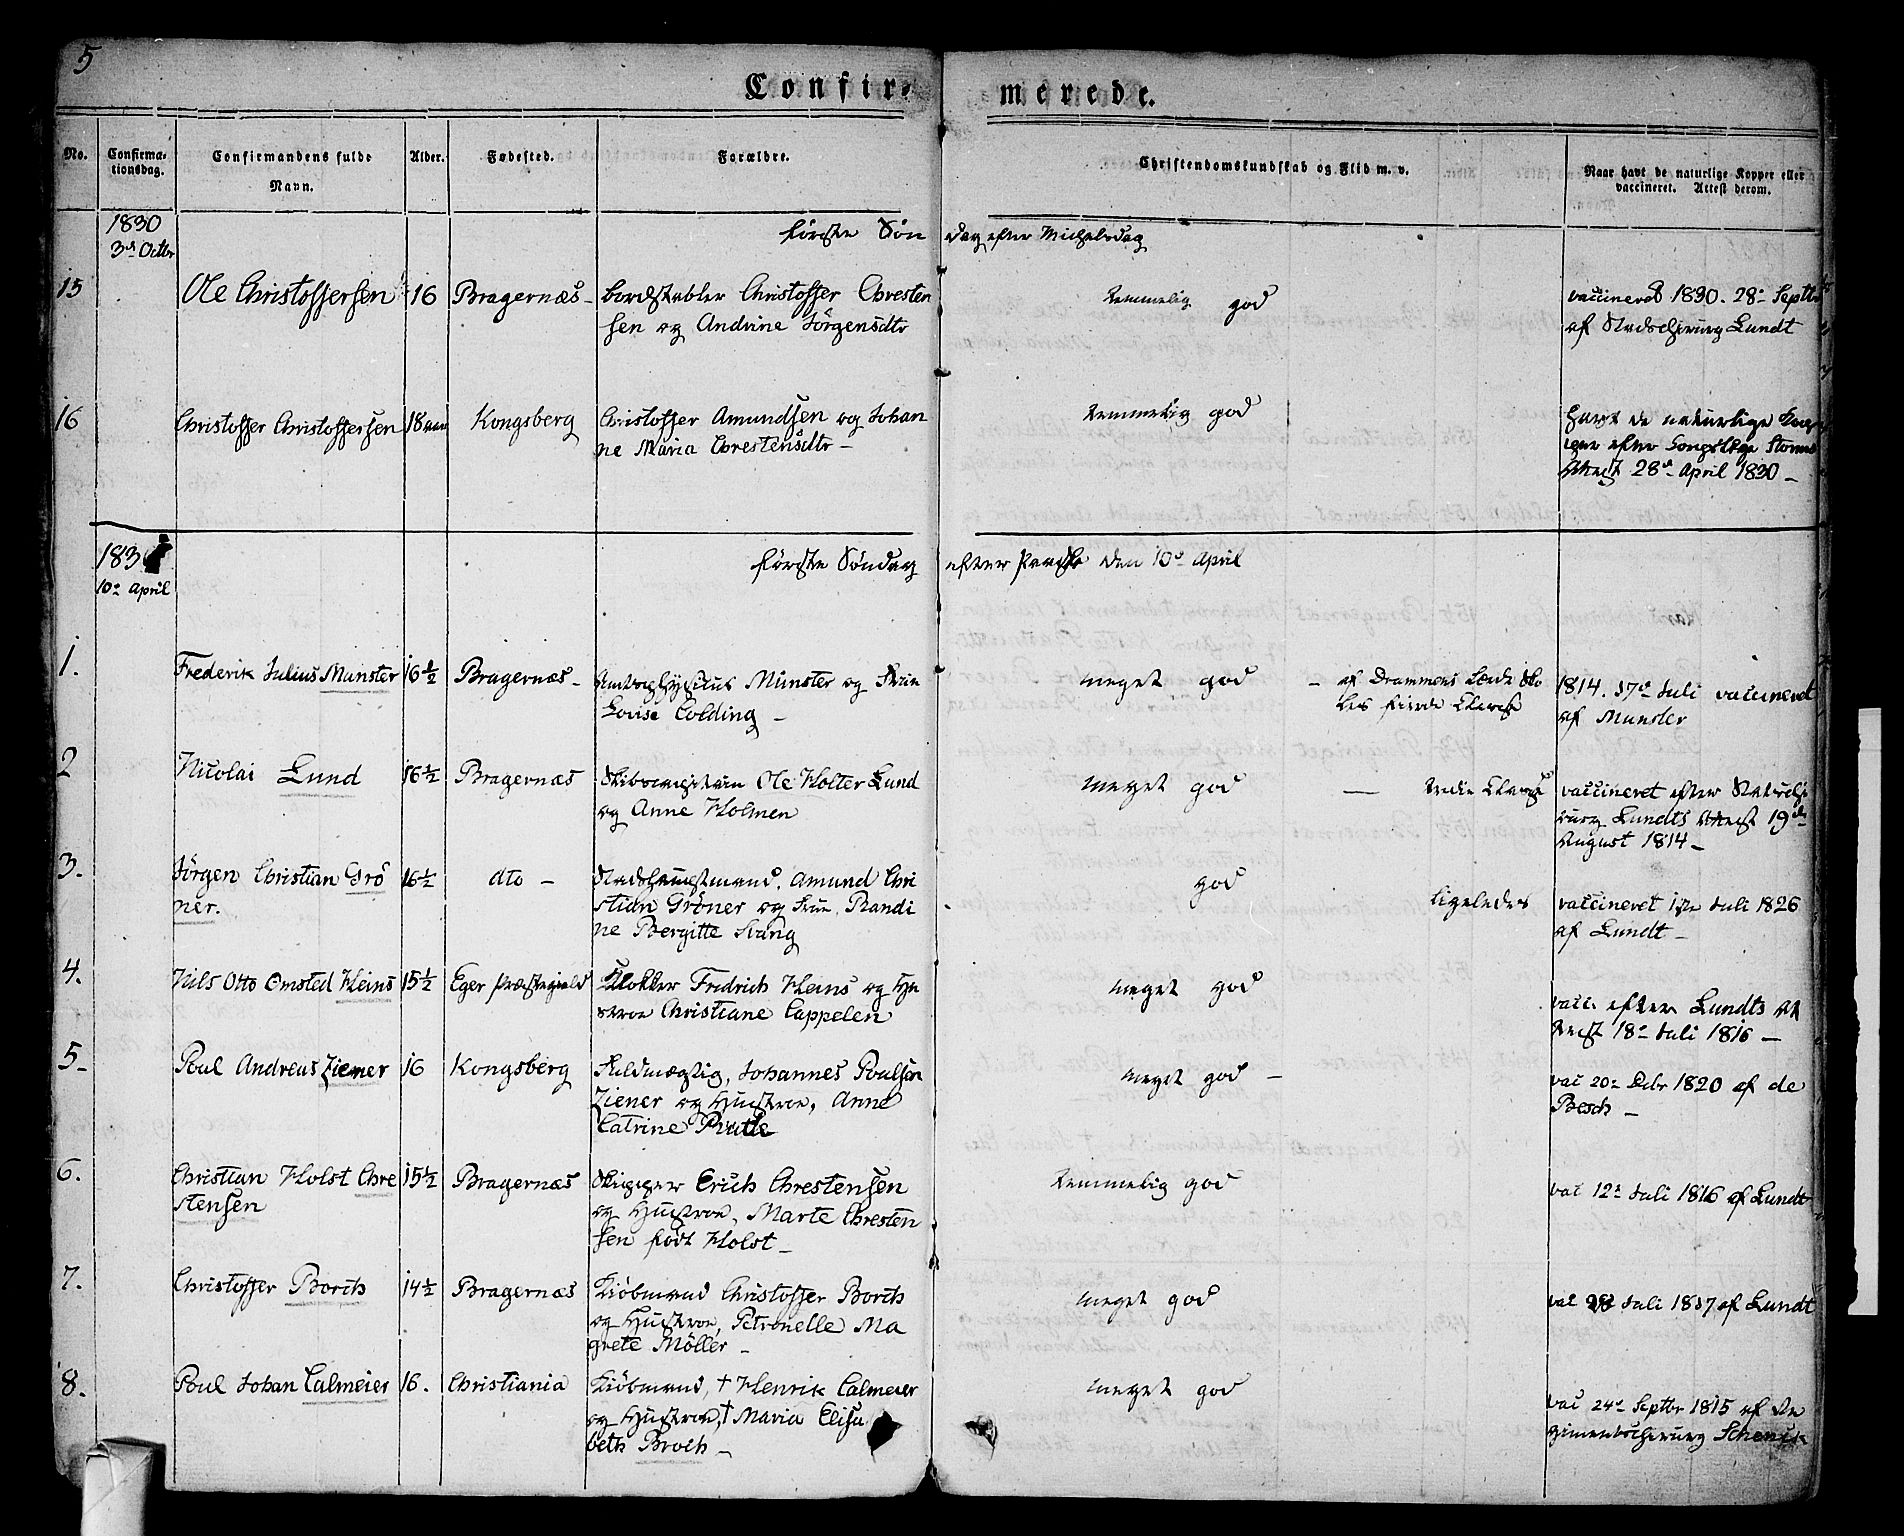 5
Confir merede.
No.
Confirma-
tionsdag.
Confirmandens fulde
Navn.
Alder.
Fødested.
Forældre.
Christendomskundskab og Flid m. v.
Naar havt de naturlige Kopper eller
vaccineret. Attest derom.
1830
3d Octbr
første Søn dag efter Michelsdag
15 Ole Christoffersen 16 Bragernæs
Christoffer Chresten
sen og Andrine Jörgensdtr
temmelig god
vaccineret 1830. 28de Septbr
af Stadschirurg Lundt
16 Christoffer Christoffersen 18 Kongsberg
Christoffer Amundsen og Johan
ne Maria Chrestensdtr
temmelig god
havt de naturlige Kop
per efter
Attest 28de April 1830
183
10de April
første Søndag efter Paaske den 10de April
1. Frederik Julius Munster 16½ Bragernæs
Amtsphysicus Munster og Frue
Louise Colding
meget god
af Drammens Lærde Sko
les fierde Classe
1814. 17de Juli vaccineret
af Munster
2 Nicolai Lund 16½ Bragernæs
Skibscapitain Ole Holter Lund
og Anne Holmen
meget god
tredie Classe
vaccineret efter Stadschi
rurg Lundts Attest 19de
August 1814
3. Jörgen Christian Grö
ner. 16½ dto
Stadshauptmand, Amund Chri
stian Gröner og Frue, Randi
ne Bergitte
god
ligeledes
vaccineret Juli 1826
af Lundt
4. Nils Otto Omsted Heins 15½ Eger Præstegield
Klokker Fredrich Heins og Hu
stroe Christiane Cappelen
meget god
vacc. efter Lundts At
test 18de Juli 1816
5 Poul Andreas Ziener 16 Kongsberg
Fuldmægtig, Johannes Poulsen
Ziener og Hustroe, Anne
Catrine
meget god
vac 20de 1820 af de
Besch
6. Christian Holst Chre
stensen 15½ Bragernæs
Skipper Erich Chrestensen
og Hustroe, Marte Chresten
sen født Holst
temmelig god
vac 12te Juli 1816 af Lundt
7. Christoffer Borch 14½ Bragernæs
Kiøbmand Christoffer Borch
og Hustroe, Petronelle Ma
grete Möller
meget god
vac 28 Juli 1817 af Lundt
8. Poul Johan Calmeier 16. Christiania
Kiøbmand, † Henrik Calmeier
og Hustroe, † Maria Elisa
beth Broch
meget god
vac 24de Septbr 1815 af Re
gimentschirurg